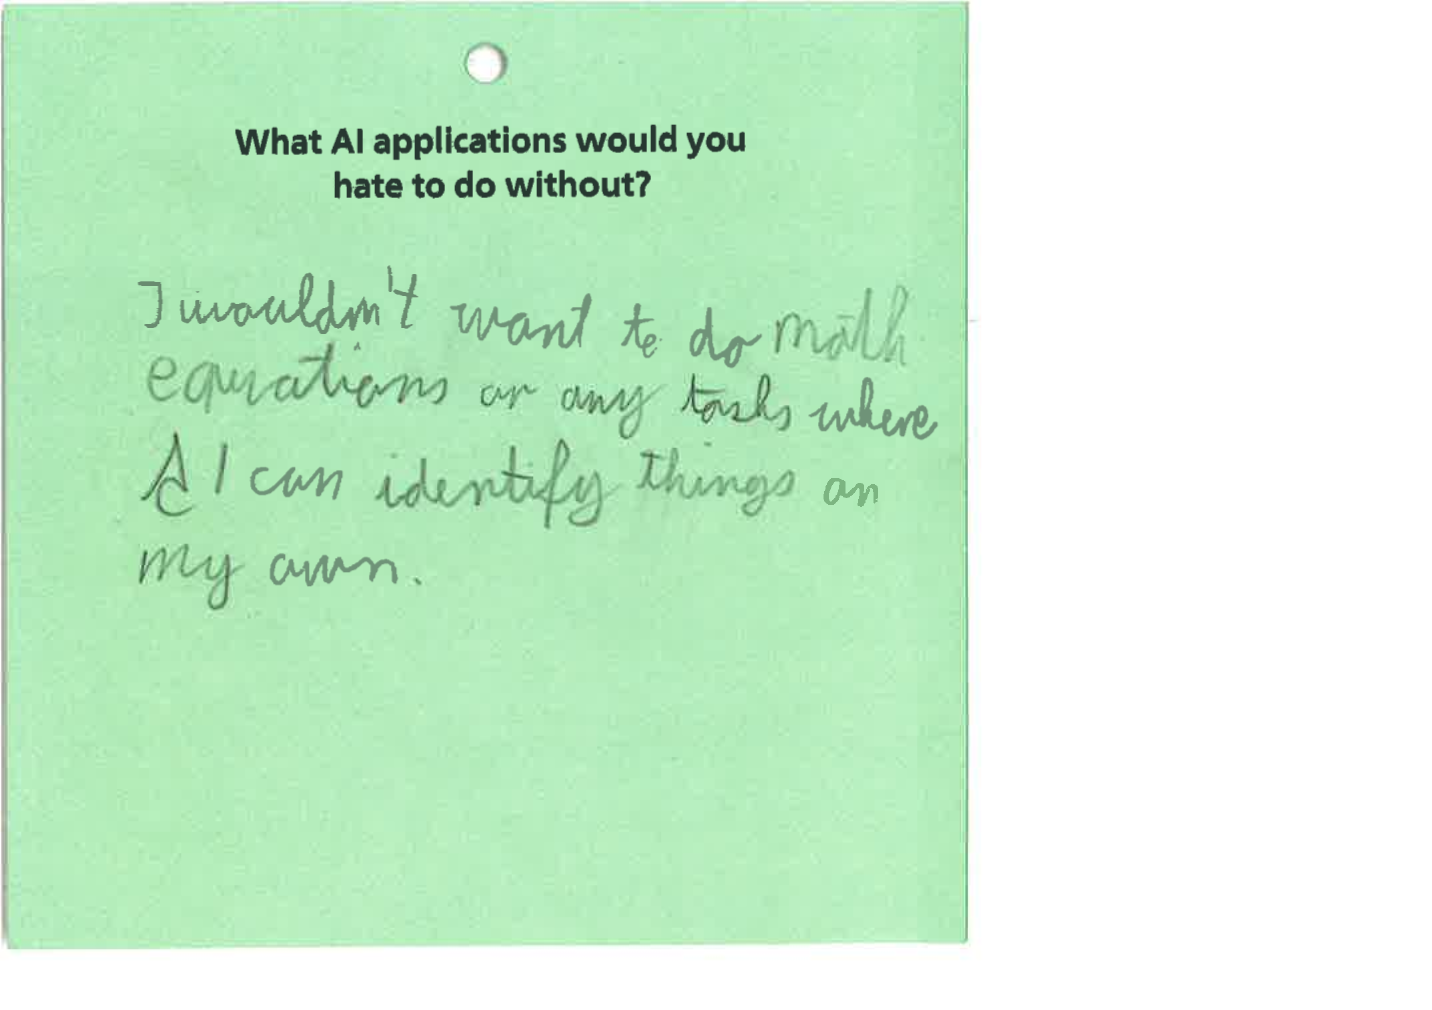 What AI applications would you
hate to do without?
I wouldn't want to do math
equations or any tasks where
AI can identify things on
my own.